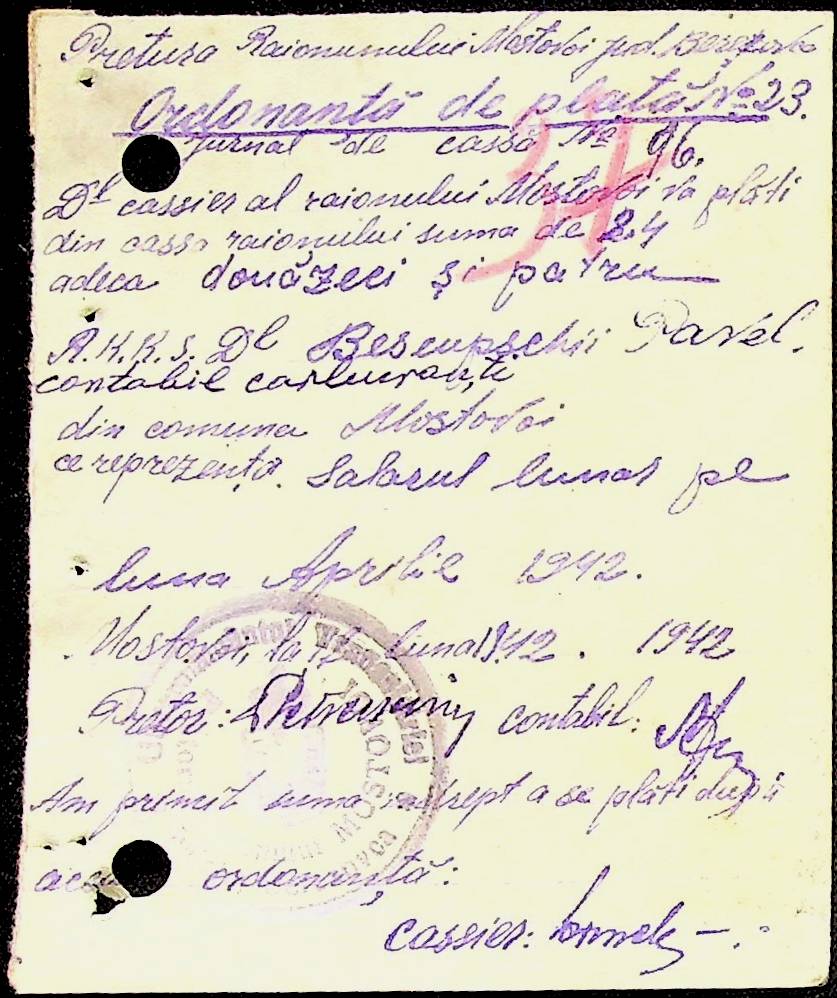 Pretura Raionumului Mostovoi jud. Berezovca
Ordonanță de plată № 23.
Jurnal de cassă № 96.
37
Dl cassier al raionului Mostovoi va plăti
din cassa raionului suma de 24
adeca douăzeci și patru
R.K.K.S. Dl Pavel.
contabil carburanți
din comuna Mostovoi
ce reprezentă Salarul lunar pe
luna Aprilie 1942.
Mostovoi, la luna 1942
Pretor: contabil:
Am primit suma a se plati după
ordonanță:
cassier:
MOSTOVOI